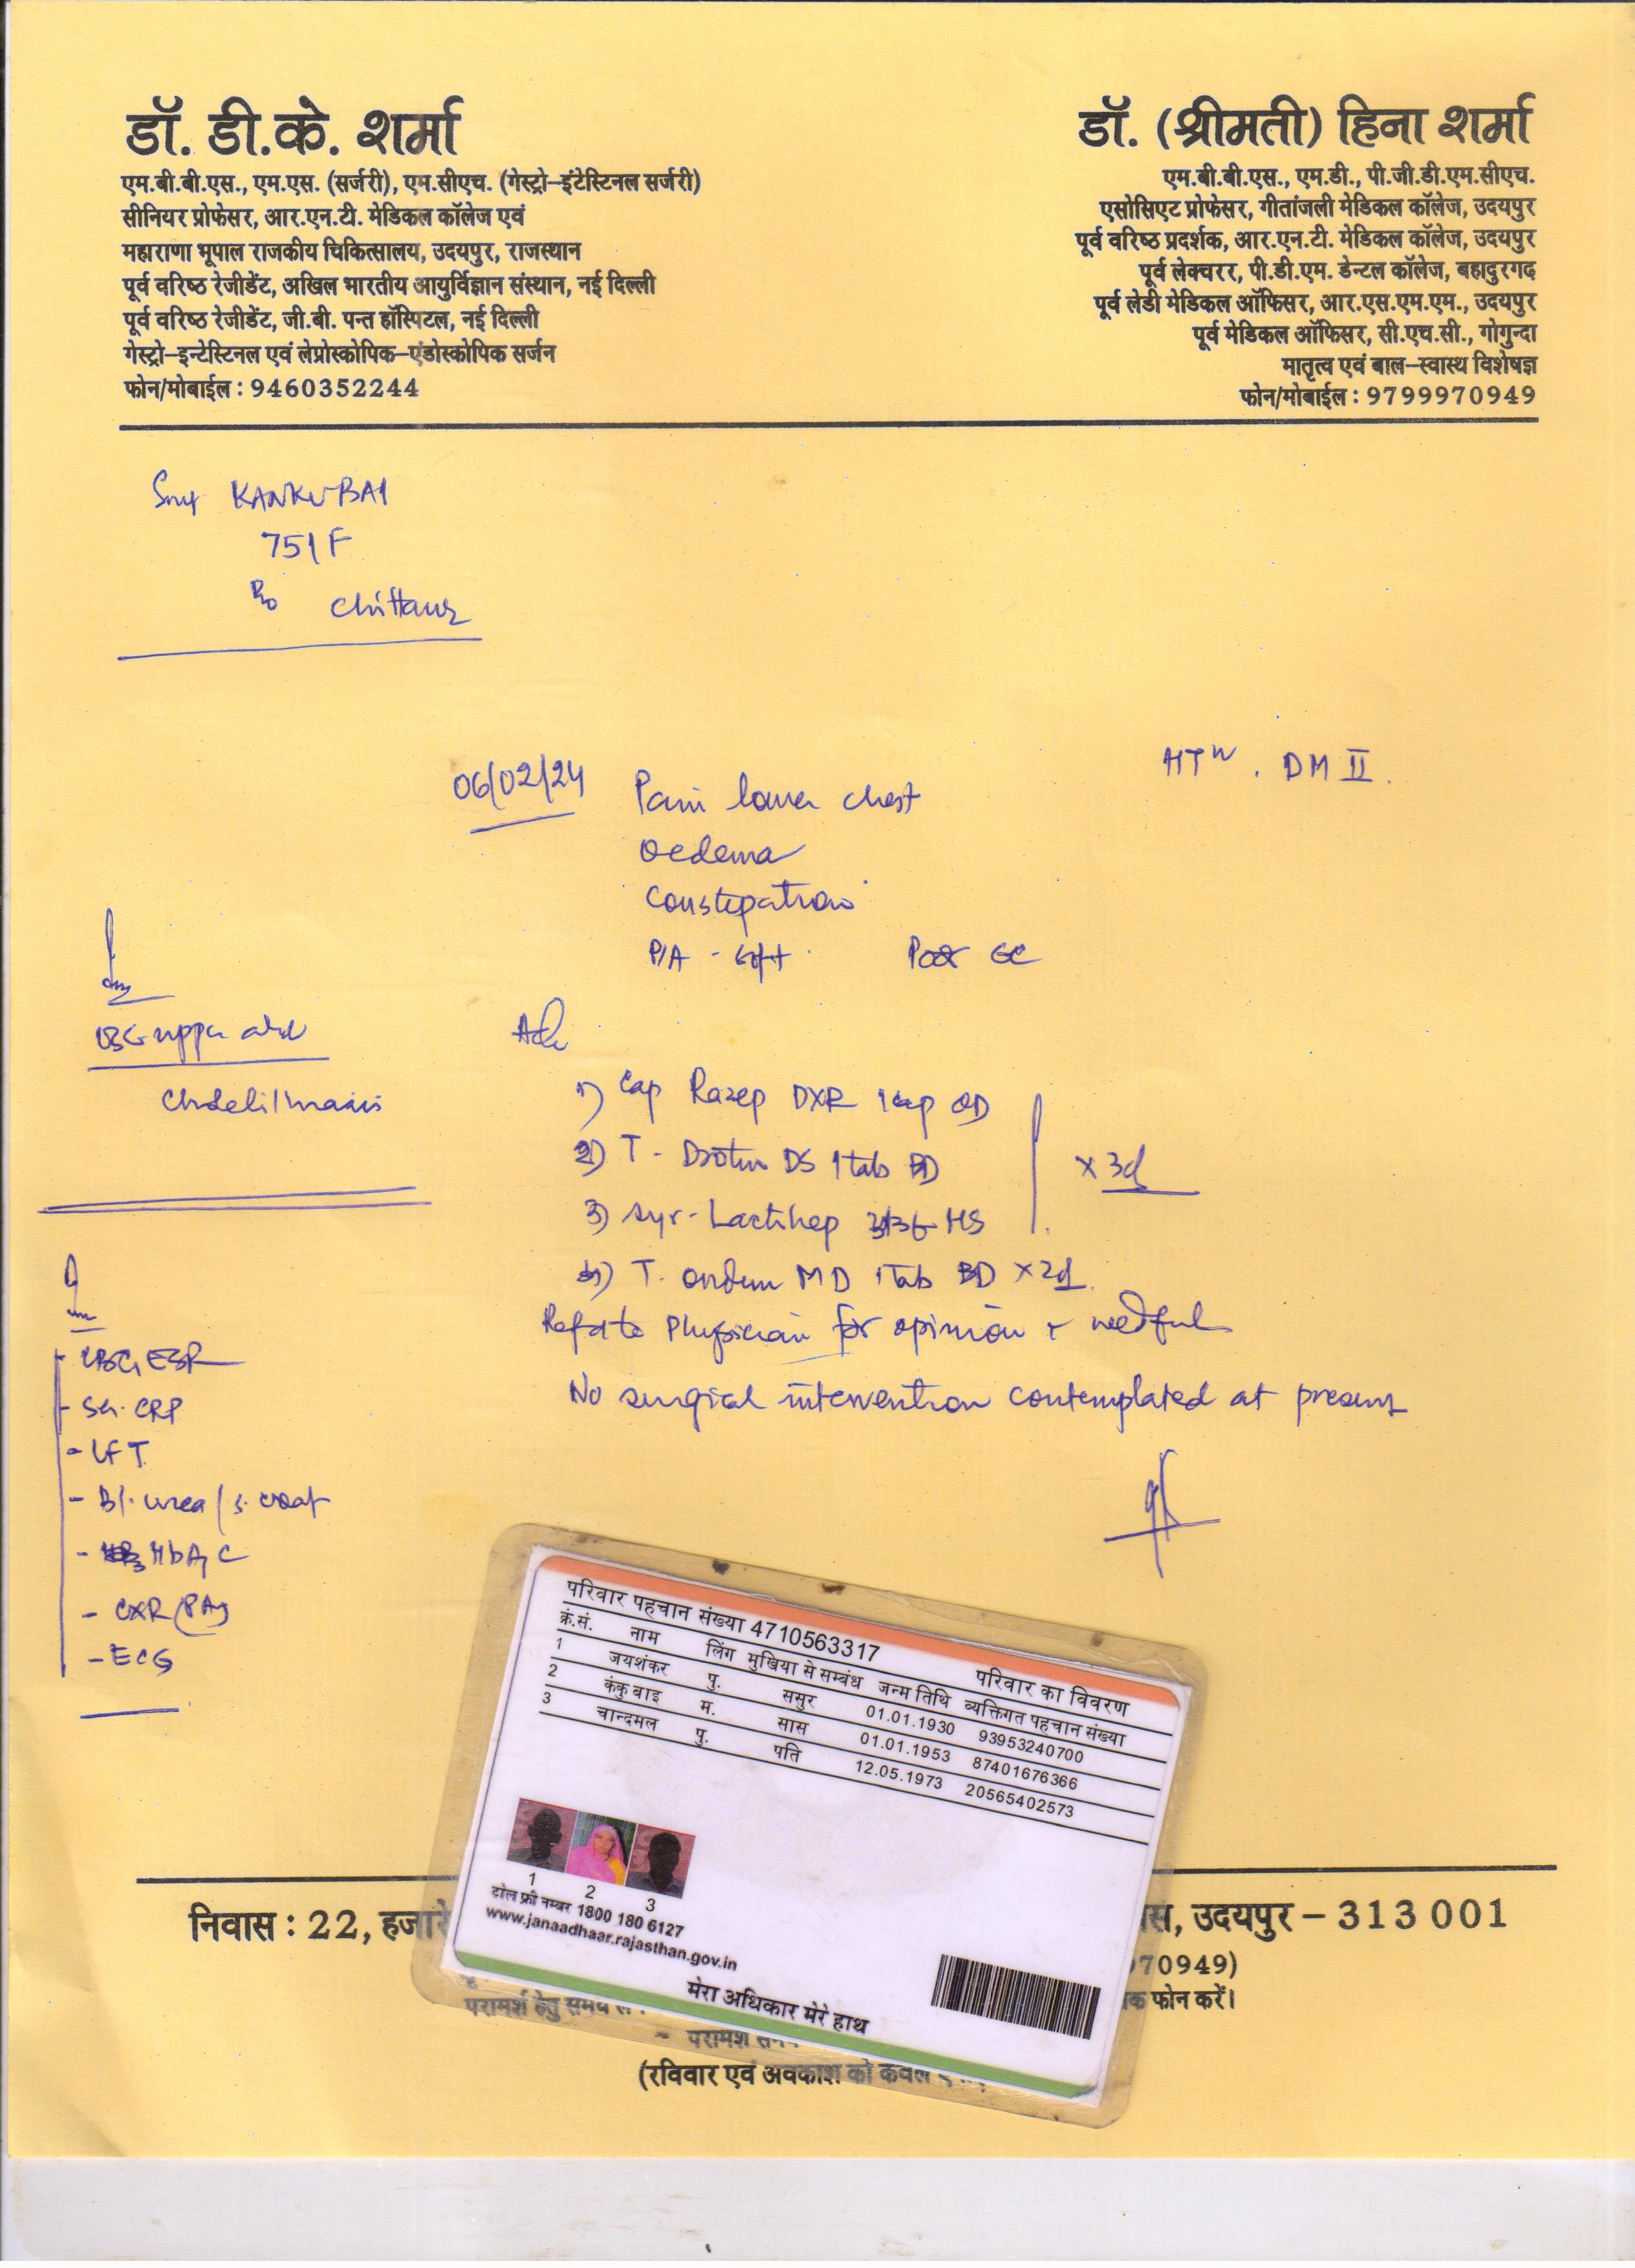 डॉ. डी.के. शर्मा
एम.बी.बी.एस., एम.एस. (सर्जरी), एम.सीएच. (गेस्ट्रो-इंटेस्टिनल सर्जरी)
सीनियर प्रोफेसर, आर.एन.टी. मेडिकल कॉलेज एवं
महाराणा भूपाल राजकीय चिकित्सालय, उदयपुर, राजस्थान
पूर्व वरिष्ठ रेजीडेंट, अखिल भारतीय आयुर्विज्ञान संस्थान, नई दिल्ली
पूर्व वरिष्ठ रेजीडेंट, जी.बी. पन्त हॉस्पिटल, नई दिल्ली
गेस्ट्रो-इन्टेस्टिनल एवं लेप्रोस्कोपिक-एंडोस्कोपिक सर्जन
फोन/मोबाईल : 9460352244
डॉ. (श्रीमती) हिना शर्मा
एम.बी.बी.एस., एम.डी., पी.जी.डी.एम.सीएच.
एसोसिएट प्रोफेसर, गीतांजली मेडिकल कॉलेज, उदयपुर
पूर्व वरिष्ठ प्रदर्शक, आर.एन.टी. मेडिकल कॉलेज, उदयपुर
पूर्व लेक्चरर, पी.डी.एम. डेन्टल कॉलेज, बहादुरगढ़
पूर्व लेडी मेडिकल ऑफिसर, आर.एस.एम.एम., उदयपुर
पूर्व मेडिकल ऑफिसर, सी.एच.सी., गोगुन्दा
मातृत्व एवं बाल-स्वास्थ विशेषज्ञ
फोन/मोबाईल : 9799970949
Smt KANKU BAI
75/F
R/o Chittaur
HTN . DM II
06/02/24 Pain lower chest
Oedema
Constipation
P/A - Soft Poor GC
USG upper abd
Cholelithiasis
Adv
1) Cap Razep DXR 1 cap OD
2) T- Drotin DS 1 tab BD
x 3d
3) Syr- Lactihep HS
4) T. Ondem MD 1 Tab BD x 2d
Refer to Physician for opinion & needful
No surgical intervention contemplated at present
- CBC, ESR
- Sr. CRP
- LFT
- Bl. urea / S. creat
- HbA1C
- CXR (PA)
- ECG
परिवार पहचान संख्या 4710563317
परिवार का विवरण
क्रं.सं. नाम लिंग मुखिया से सम्बंध जन्म तिथि व्यक्तिगत पहचान संख्या
1 जयशंकर पु. ससुर 01.01.1930 93953240700
2 कंकु बाइ म. सास 01.01.1953 87401676366
3 चान्दमल पु. पति 12.05.1973 20565402573
1 2 3
टोल फ्री नम्बर 1800 180 6127
www.janaadhaar.rajasthan.gov.in
मेरा अधिकार मेरे हाथ
निवास : 22, हजारे
स, उदयपुर - 313 001
70949)
परामर्श हेतु समय
क फोन करें।
परामर्श
(रविवार एवं अवकाश को केवल